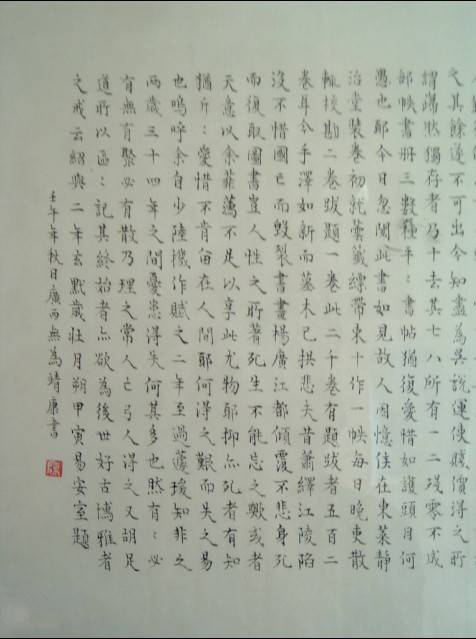 之其餘遂不可出今知盡為吳說運使賤價得之所
謂巋狀獨存者乃十去其七八所有一二殘零不成
部帙書冊三數種平〻書帖猶復愛惜如護頭目何
愚也耶今日忽閱此書如見故人因憶侯在東萊靜
治堂裝卷初就芸籤縹帶束十作一帙每日晚吏散
輒校勘二卷跋題一卷此二千卷有題跋者五百二
卷耳今手澤如新而墓木已拱悲夫昔蕭繹江陵陷
沒不惜國亡而毀裂書畫楊廣江都傾覆不悲身死
而復取圖書豈人性之所著死生不能忘之歟或者
天意以余菲薄不足以享此尤物耶抑亦死者有知
猶斤〻愛惜不肯留在人間耶何得之艱而失之易
也嗚呼余自少陸機作賦之二年至過蘧瑗知非之
兩歲三十四年之間憂患得失何其多也然有〻必
有無有聚必有散乃理之常人亡弓人得之又胡足
道所以區〻記其終始者亦欲為後世好古博雅者
之戒云紹興二年玄黓歲壯月朔甲寅易安室題
壬午年秋日廣西無為靖康書